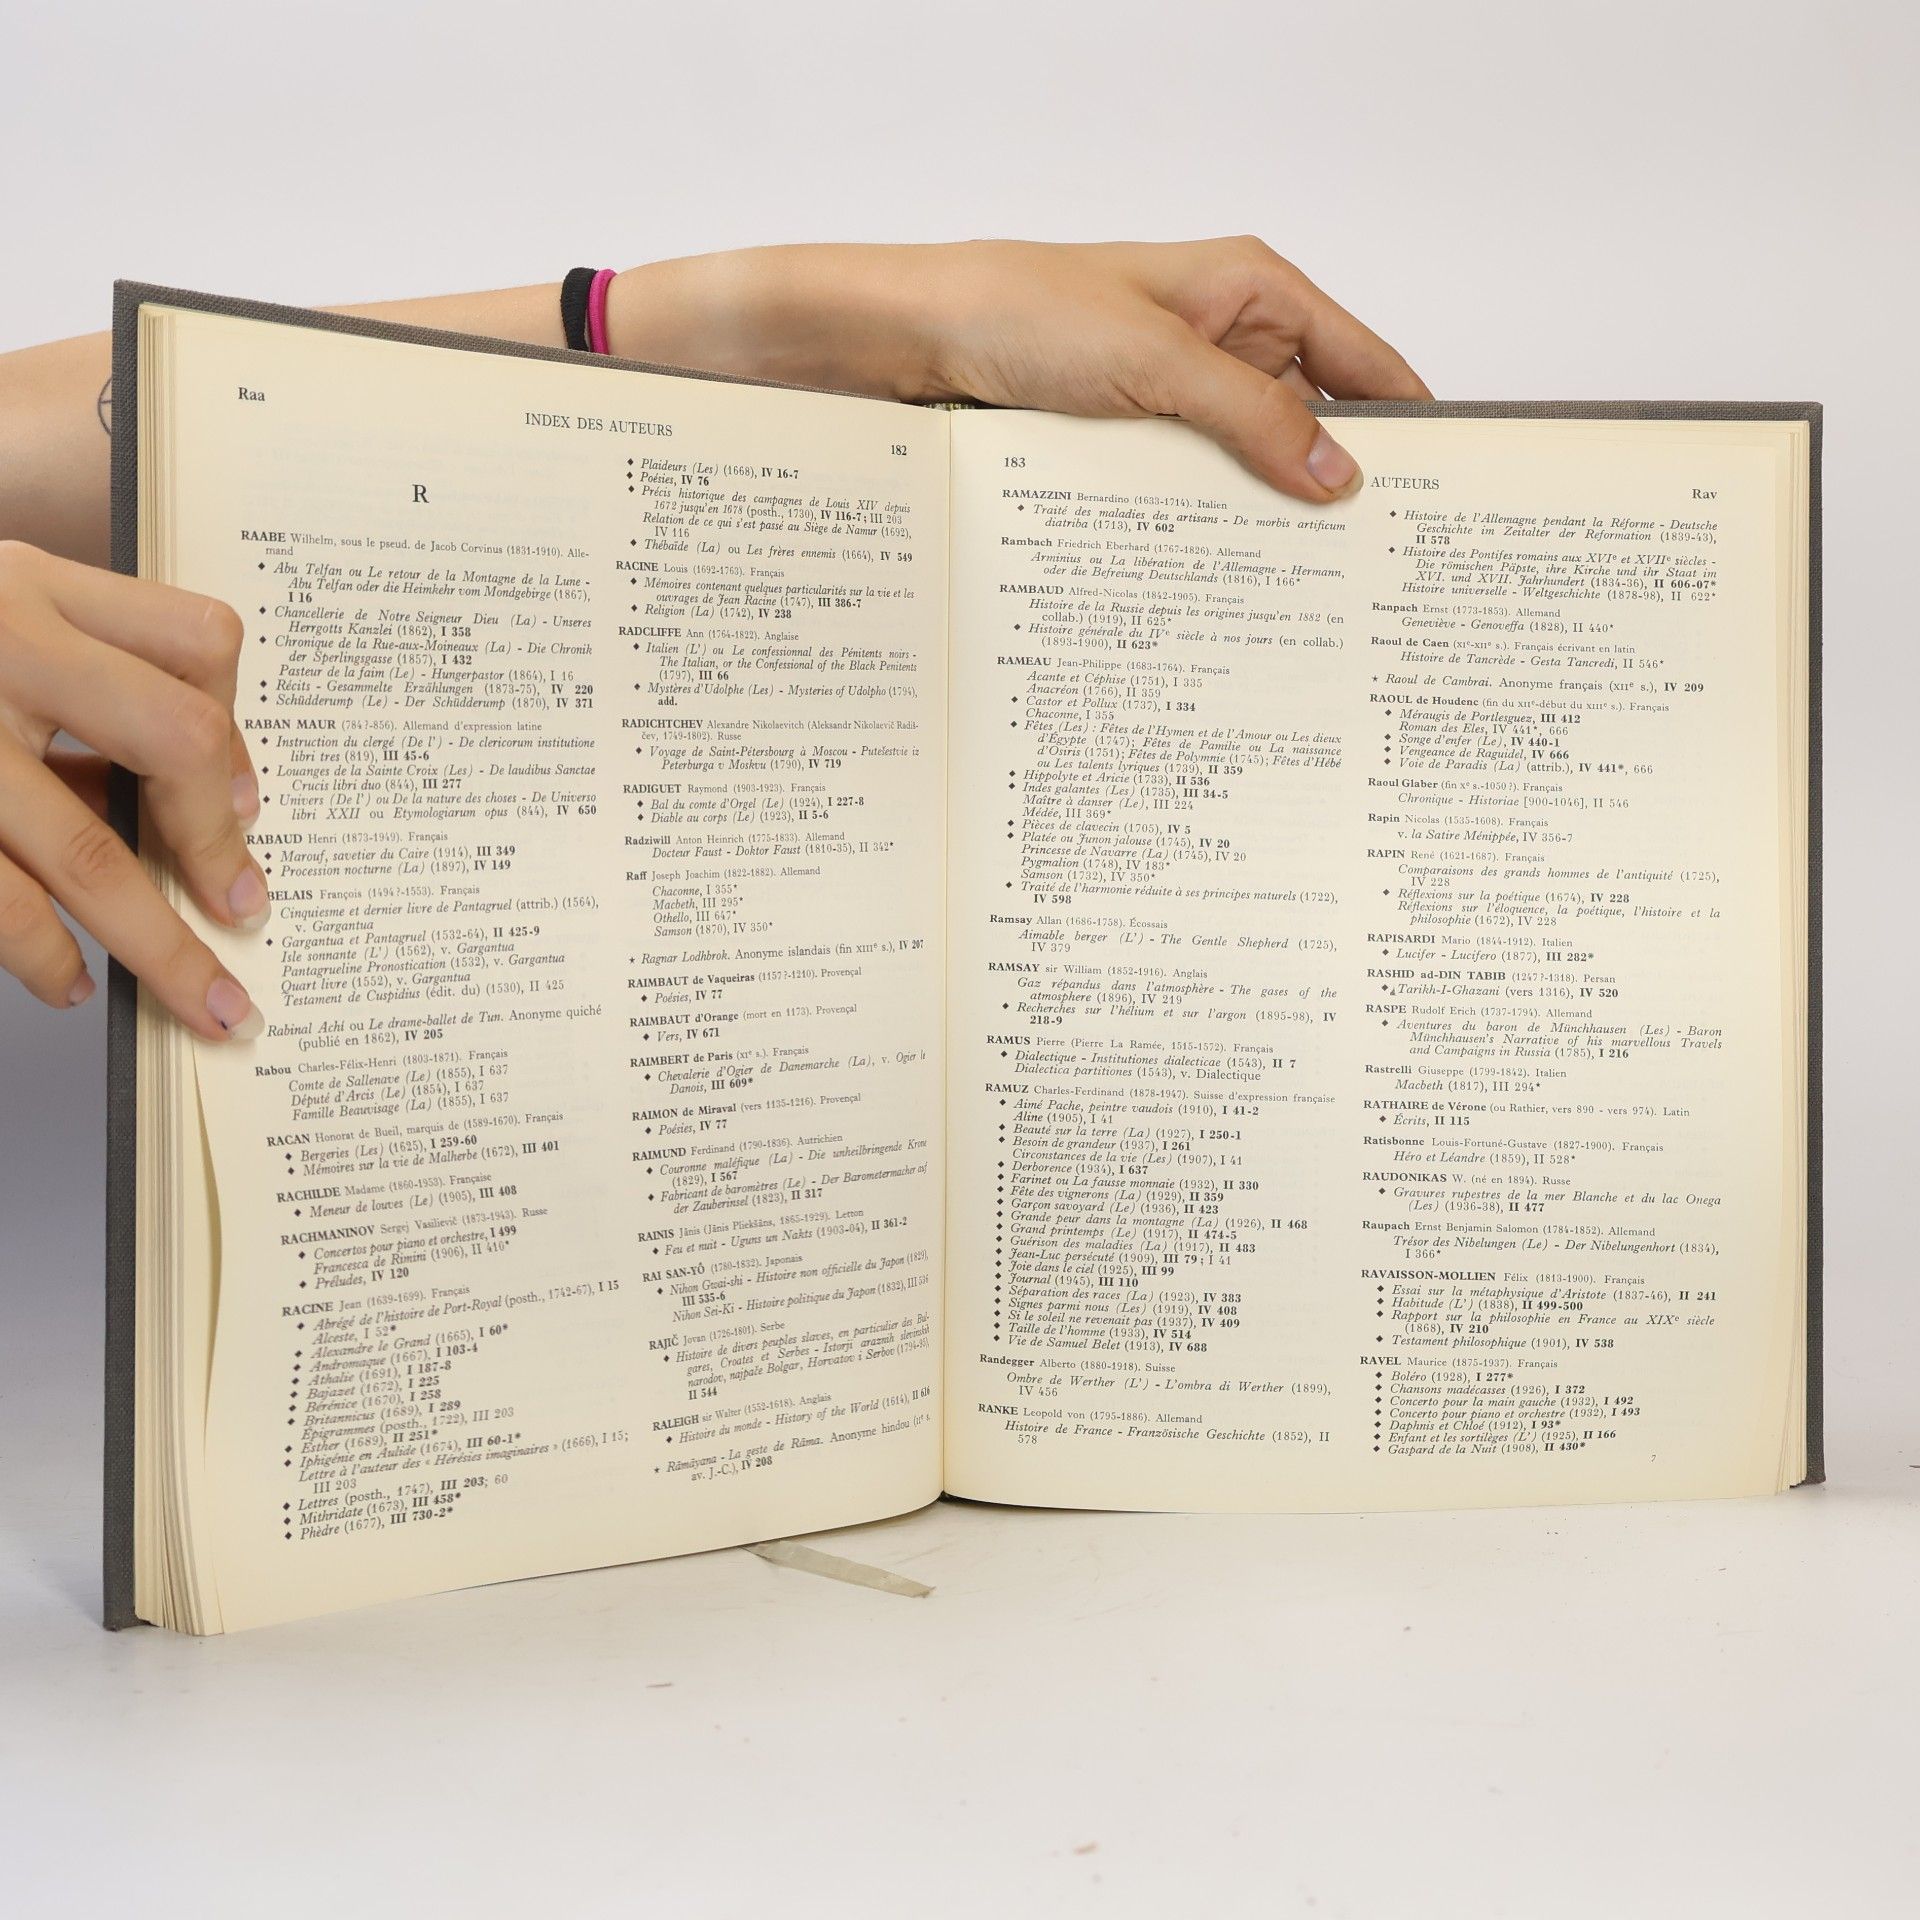 Raa
INDEX DES AUTEURS
182
R
RAABE Wilhelm, sous le pseud. de Jacob Corvinus (1831-1910). Alle-
mand
◆ Abu Telfan ou Le retour de la Montagne de la Lune -
Abu Telfan oder die Heimkehr vom Mondgebirge (1867),
I 16
◆ Chancellerie de Notre Seigneur Dieu (La) - Unseres
Herrgotts Kanzlei (1862), I 358
◆ Chronique de la Rue-aux-Moineaux (La) - Die Chronik
der Sperlingsgasse (1857), I 432
Pasteur de la faim (Le) - Hungerpastor (1864), I 16
◆ Récits - Gesammelte Erzählungen (1873-75), IV 220
◆ Schüdderump (Le) - Der Schüdderump (1870), IV 371
RABAN MAUR (784?-856). Allemand d'expression latine
◆ Instruction du clergé (De l') - De clericorum institutione
libri tres (819), III 45-6
◆ Louanges de la Sainte Croix (Les) - De laudibus Sanctae
Crucis libri duo (844), III 277
◆ Univers (De l') ou De la nature des choses - De Universo
libri XXII ou Etymologiarum opus (844), IV 650
RABAUD Henri (1873-1949). Français
◆ Marouf, savetier du Caire (1914), III 349
◆ Procession nocturne (La) (1897), IV 149
BELAIS François (1494?-1553). Français
Cinquiesme et dernier livre de Pantagruel (attrib.) (1564),
v. Gargantua
◆ Gargantua et Pantagruel (1532-64), II 425-9
Isle sonnante (L') (1562), v. Gargantua
Pantagrueline Pronostication (1532), v. Gargantua
Quart livre (1552), v. Gargantua
Testament de Cuspidius (édit. du) (1530), II 425
Rabinal Achí ou Le drame-ballet de Tun. Anonyme quiché
(publié en 1862), IV 205
Rabou Charles-Félix-Henri (1803-1871). Français
Comte de Sallenave (Le) (1855), I 637
Député d'Arcis (Le) (1854), I 637
Famille Beauvisage (La) (1855), I 637
RACAN Honorat de Bueil, marquis de (1589-1670). Français
◆ Bergeries (Les) (1625), I 259-60
◆ Mémoires sur la vie de Malherbe (1672), III 401
RACHILDE Madame (1860-1953). Française
◆ Meneur de louves (Le) (1905), III 408
RACHMANINOV Sergej Vasilievič (1873-1943). Russe
◆ Concertos pour piano et orchestre, I 499
Francesca de Rimini (1906), II 410*
◆ Préludes, IV 120
RACINE Jean (1639-1699). Français
◆ Abrégé de l'histoire de Port-Royal (posth., 1742-67), I 15
Alceste, I 52*
◆ Alexandre le Grand (1665), I 60*
◆ Andromaque (1667), I 103-4
◆ Athalie (1691), I 187-8
◆ Bajazet (1672), I 225
◆ Bérénice (1670), I 258
◆ Britannicus (1689), I 289
Épigrammes (posth., 1722), III 203
◆ Esther (1689), II 251*
◆ Iphigénie en Aulide (1674), III 60-1*
Lettre à l'auteur des « Hérésies imaginaires » (1666), I 15;
III 203
◆ Lettres (posth., 1747), III 203; 60
◆ Mithridate (1673), III 458*
◆ Phèdre (1677), III 730-2*
◆ Plaideurs (Les) (1668), IV 16-7
◆ Poésies, IV 76
◆ Précis historique des campagnes de Louis XIV depuis
1672 jusqu'en 1678 (posth., 1730), IV 116-7; III 203
Relation de ce qui s'est passé au Siège de Namur (1692),
IV 116
◆ Thébaïde (La) ou Les frères ennemis (1664), IV 549
RACINE Louis (1692-1763). Français
◆ Mémoires contenant quelques particularités sur la vie et les
ouvrages de Jean Racine (1747), III 386-7
◆ Religion (La) (1742), IV 238
RADCLIFFE Ann (1764-1822). Anglaise
◆ Italien (L') ou Le confessionnal des Pénitents noirs -
The Italian, or the Confessional of the Black Penitents
(1797), III 66
◆ Mystères d'Udolphe (Les) - Mysteries of Udolpho (1794),
add.
RADICHTCHEV Alexandre Nikolaevitch (Aleksandr Nikolaevič Radiš-
čev, 1749-1802). Russe
◆ Voyage de Saint-Pétersbourg à Moscou - Putešestvie iz
Peterburga v Moskvu (1790), IV 719
RADIGUET Raymond (1903-1923). Français
◆ Bal du comte d'Orgel (Le) (1924), I 227-8
◆ Diable au corps (Le) (1923), II 5-6
Radziwill Anton Heinrich (1775-1833). Allemand
Docteur Faust - Doktor Faust (1810-35), II 342*
Raff Joseph Joachim (1822-1882). Allemand
Chaconne, I 355*
Macbeth, III 295*
Othello, III 647*
Samson (1870), IV 350*
★ Ragnar Lodhbrok. Anonyme islandais (fin XIIIe s.), IV 207
RAIMBAUT de Vaqueiras (1157?-1210). Provençal
◆ Poésies, IV 77
RAIMBAUT d'Orange (mort en 1173). Provençal
◆ Vers, IV 671
RAIMBERT de Paris (XIe s.). Français
◆ Chevalerie d'Ogier de Danemarche (La), v. Ogier le
Danois, III 609*
RAIMON de Miraval (vers 1135-1216). Provençal
◆ Poésies, IV 77
RAIMUND Ferdinand (1790-1836). Autrichien
◆ Couronne maléfique (La) - Die unheilbringende Krone
(1829), I 567
◆ Fabricant de baromètres (Le) - Der Barometermacher auf
der Zauberinsel (1823), II 317
RAINIS Jānis (Jānis Pliekšāns, 1865-1929). Letton
◆ Feu et nuit - Uguns un Nakts (1903-04), II 361-2
RAI SAN-YÔ (1780-1832). Japonais
◆ Nihon Gwai-shi - Histoire non officielle du Japon (1829),
III 535-6
Nihon Sei-Ki - Histoire politique du Japon (1832), III 536
RAJIČ Jovan (1726-1801). Serbe
◆ Histoire de divers peuples slaves, en particulier des Bul-
gares, Croates et Serbes - Istorij araznih slevinskih
narodov, najpače Bolgar, Horvatov i Serbov (1794-95),
II 544
RALEIGH sir Walter (1552-1618). Anglais
◆ Histoire du monde - History of the World (1614), II 616
★ Rāmāyana - La geste de Râma. Anonyme hindou (IIe s.
av. J.-C.), IV 208
183
AUTEURS
Rav
RAMAZZINI Bernardino (1633-1714). Italien
◆ Traité des maladies des artisans - De morbis artificum
diatriba (1713), IV 602
Rambach Friedrich Eberhard (1767-1826). Allemand
Arminius ou La libération de l'Allemagne - Hermann,
oder die Befreiung Deutschlands (1816), I 166*
RAMBAUD Alfred-Nicolas (1842-1905). Français
Histoire de la Russie depuis les origines jusqu'en 1882 (en
collab.) (1919), II 625*
◆ Histoire générale du IVe siècle à nos jours (en collab.)
(1893-1900), II 623*
RAMEAU Jean-Philippe (1683-1764). Français
Acante et Céphise (1751), I 335
Anacréon (1766), II 359
◆ Castor et Pollux (1737), I 334
Chaconne, I 355
◆ Fêtes (Les) : Fêtes de l'Hymen et de l'Amour ou Les dieux
d'Égypte (1747); Fêtes de Pamilie ou La naissance
d'Osiris (1751); Fêtes de Polymnie (1745); Fêtes d'Hébé
ou Les talents lyriques (1739), II 359
◆ Hippolyte et Aricie (1733), II 536
◆ Indes galantes (Les) (1735), III 34-5
Maître à danser (Le), III 224
Médée, III 369*
◆ Pièces de clavecin (1705), IV 5
◆ Platée ou Junon jalouse (1745), IV 20
Princesse de Navarre (La) (1745), IV 20
Pygmalion (1748), IV 183*
Samson (1732), IV 350*
◆ Traité de l'harmonie réduite à ses principes naturels (1722),
IV 598
Ramsay Allan (1686-1758). Écossais
Aimable berger (L') - The Gentle Shepherd (1725),
IV 379
RAMSAY sir William (1852-1916). Anglais
Gaz répandus dans l'atmosphère - The gases of the
atmosphere (1896), IV 219
◆ Recherches sur l'hélium et sur l'argon (1895-98), IV
218-9
RAMUS Pierre (Pierre La Ramée, 1515-1572). Français
◆ Dialectique - Institutiones dialecticae (1543), II 7
Dialectica partitiones (1543), v. Dialectique
RAMUZ Charles-Ferdinand (1878-1947). Suisse d'expression française
◆ Aimé Pache, peintre vaudois (1910), I 41-2
Aline (1905), I 41
◆ Beauté sur la terre (La) (1927), I 250-1
◆ Besoin de grandeur (1937), I 261
Circonstances de la vie (Les) (1907), I 41
◆ Derborence (1934), I 637
◆ Farinet ou La fausse monnaie (1932), II 330
◆ Fête des vignerons (La) (1929), II 359
◆ Garçon savoyard (Le) (1936), II 423
◆ Grande peur dans la montagne (La) (1926), II 468
◆ Grand printemps (Le) (1917), II 474-5
◆ Guérison des maladies (La) (1917), II 483
◆ Jean-Luc persécuté (1909), III 79; I 41
◆ Joie dans le ciel (1925), III 99
◆ Journal (1945), III 110
◆ Séparation des races (La) (1923), IV 383
◆ Signes parmi nous (Les) (1919), IV 408
◆ Si le soleil ne revenait pas (1937), IV 409
◆ Taille de l'homme (1933), IV 514
◆ Vie de Samuel Belet (1913), IV 688
Randegger Alberto (1880-1918). Suisse
Ombre de Werther (L') - L'ombra di Werther (1899),
IV 456
RANKE Leopold von (1795-1886). Allemand
Histoire de France - Französische Geschichte (1852), II
578
◆ Histoire de l'Allemagne pendant la Réforme - Deutsche
Geschichte im Zeitalter der Reformation (1839-43),
II 578
◆ Histoire des Pontifes romains aux XVIe et XVIIe siècles -
Die römischen Päpste, ihre Kirche und ihr Staat im
XVI. und XVII. Jahrhundert (1834-36), II 606-07*
Histoire universelle - Weltgeschichte (1878-98), II 622*
Ranpach Ernst (1773-1853). Allemand
Geneviève - Genoveffa (1828), II 440*
Raoul de Caen (XIe-XIIe s.). Français écrivant en latin
Histoire de Tancrède - Gesta Tancredi, II 546*
★ Raoul de Cambrai. Anonyme français (XIIe s.), IV 209
RAOUL de Houdenc (fin du XIIe-début du XIIIe s.). Français
◆ Méraugis de Portlesguez, III 412
Roman des Eles, IV 441*, 666
◆ Songe d'enfer (Le), IV 440-1
◆ Vengeance de Raguidel, IV 666
◆ Voie de Paradis (La) (attrib.), IV 441*, 666
Raoul Glaber (fin Xe s.-1050?). Français
Chronique - Historiae [900-1046], II 546
Rapin Nicolas (1535-1608). Français
v. la Satire Ménippée, IV 356-7
RAPIN René (1621-1687). Français
Comparaisons des grands hommes de l'antiquité (1725),
IV 228
◆ Réflexions sur la poétique (1674), IV 228
Réflexions sur l'éloquence, la poétique, l'histoire et la
philosophie (1672), IV 228
RAPISARDI Mario (1844-1912). Italien
◆ Lucifer - Lucifero (1877), III 282*
RASHID ad-DIN TABIB (1247?-1318). Persan
◆ Tarikh-I-Ghazani (vers 1316), IV 520
RASPE Rudolf Erich (1737-1794). Allemand
◆ Aventures du baron de Münchhausen (Les) - Baron
Münchhausen's Narrative of his marvellous Travels
and Campaigns in Russia (1785), I 216
Rastrelli Giuseppe (1799-1842). Italien
Macbeth (1817), III 294*
RATHAIRE de Vérone (ou Rathier, vers 890 - vers 974). Latin
◆ Écrits, II 115
Ratisbonne Louis-Fortuné-Gustave (1827-1900). Français
Héro et Léandre (1859), II 528*
RAUDONIKAS W. (né en 1894). Russe
◆ Gravures rupestres de la mer Blanche et du lac Onega
(Les) (1936-38), II 477
Raupach Ernst Benjamin Salomon (1784-1852). Allemand
Trésor des Nibelungen (Le) - Der Nibelungenhort (1834),
I 366*
RAVAISSON-MOLLIEN Félix (1813-1900). Français
◆ Essai sur la métaphysique d'Aristote (1837-46), II 241
◆ Habitude (L') (1838), II 499-500
◆ Rapport sur la philosophie en France au XIXe siècle
(1868), IV 210
◆ Testament philosophique (1901), IV 538
RAVEL Maurice (1875-1937). Français
◆ Boléro (1928), I 277*
◆ Chansons madécasses (1926), I 372
◆ Concerto pour la main gauche (1932), I 492
◆ Concerto pour piano et orchestre (1932), I 493
◆ Daphnis et Chloé (1912), I 93*
◆ Enfant et les sortilèges (L') (1925), II 166
◆ Gaspard de la Nuit (1908), II 430*
7